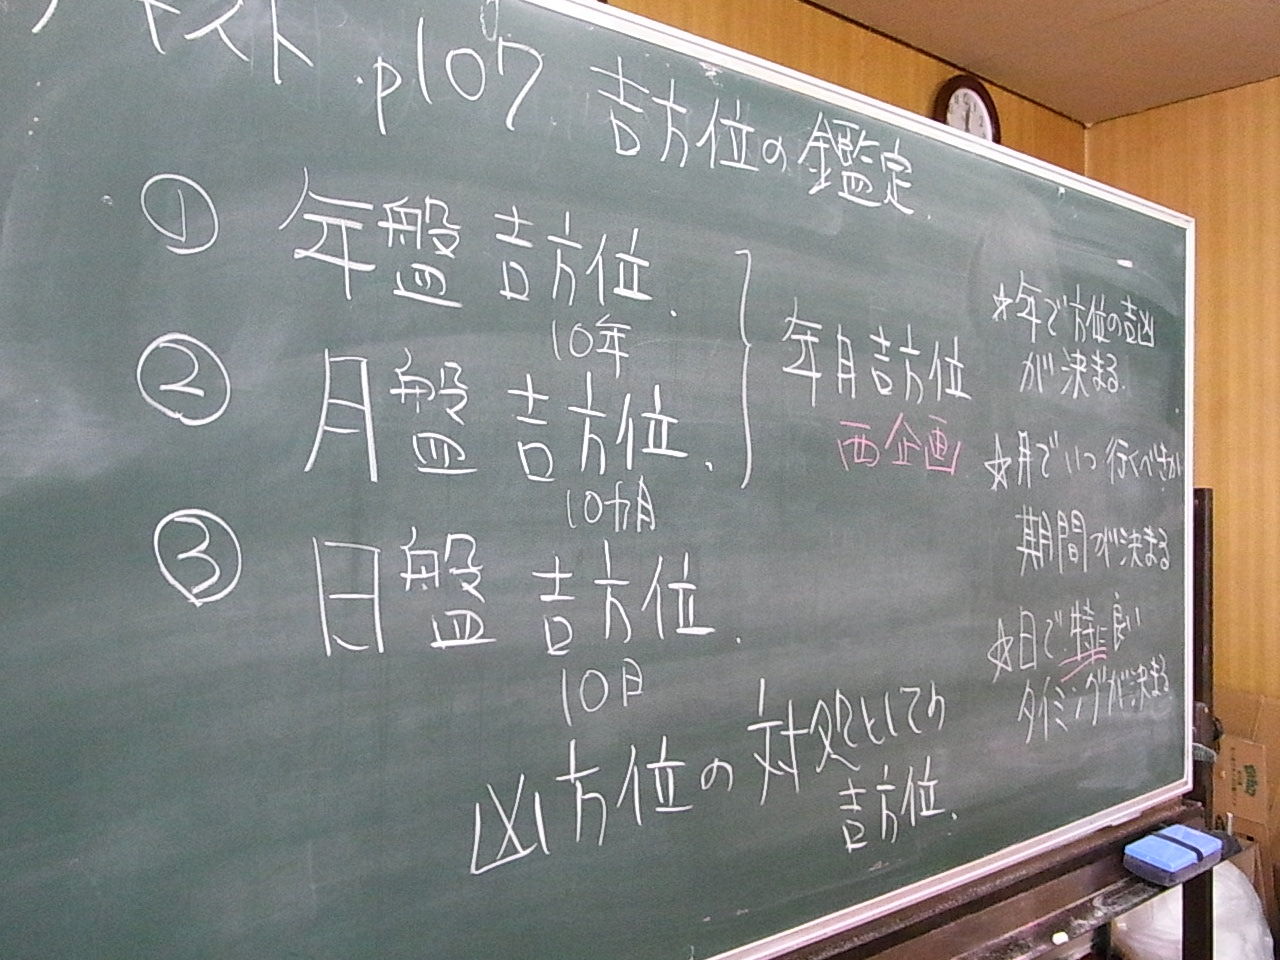 テキスト p107 吉方位の鑑定
① 年盤吉方位
10年
② 月盤吉方位
10カ月
③ 日盤吉方位
10日
年月吉方位
西企画
☆年で方位の吉凶
が決まる
☆月でいつ行くべきか
期間が決まる
☆日で特に良い
タイミングが決まる
凶方位の対処としての
吉方位